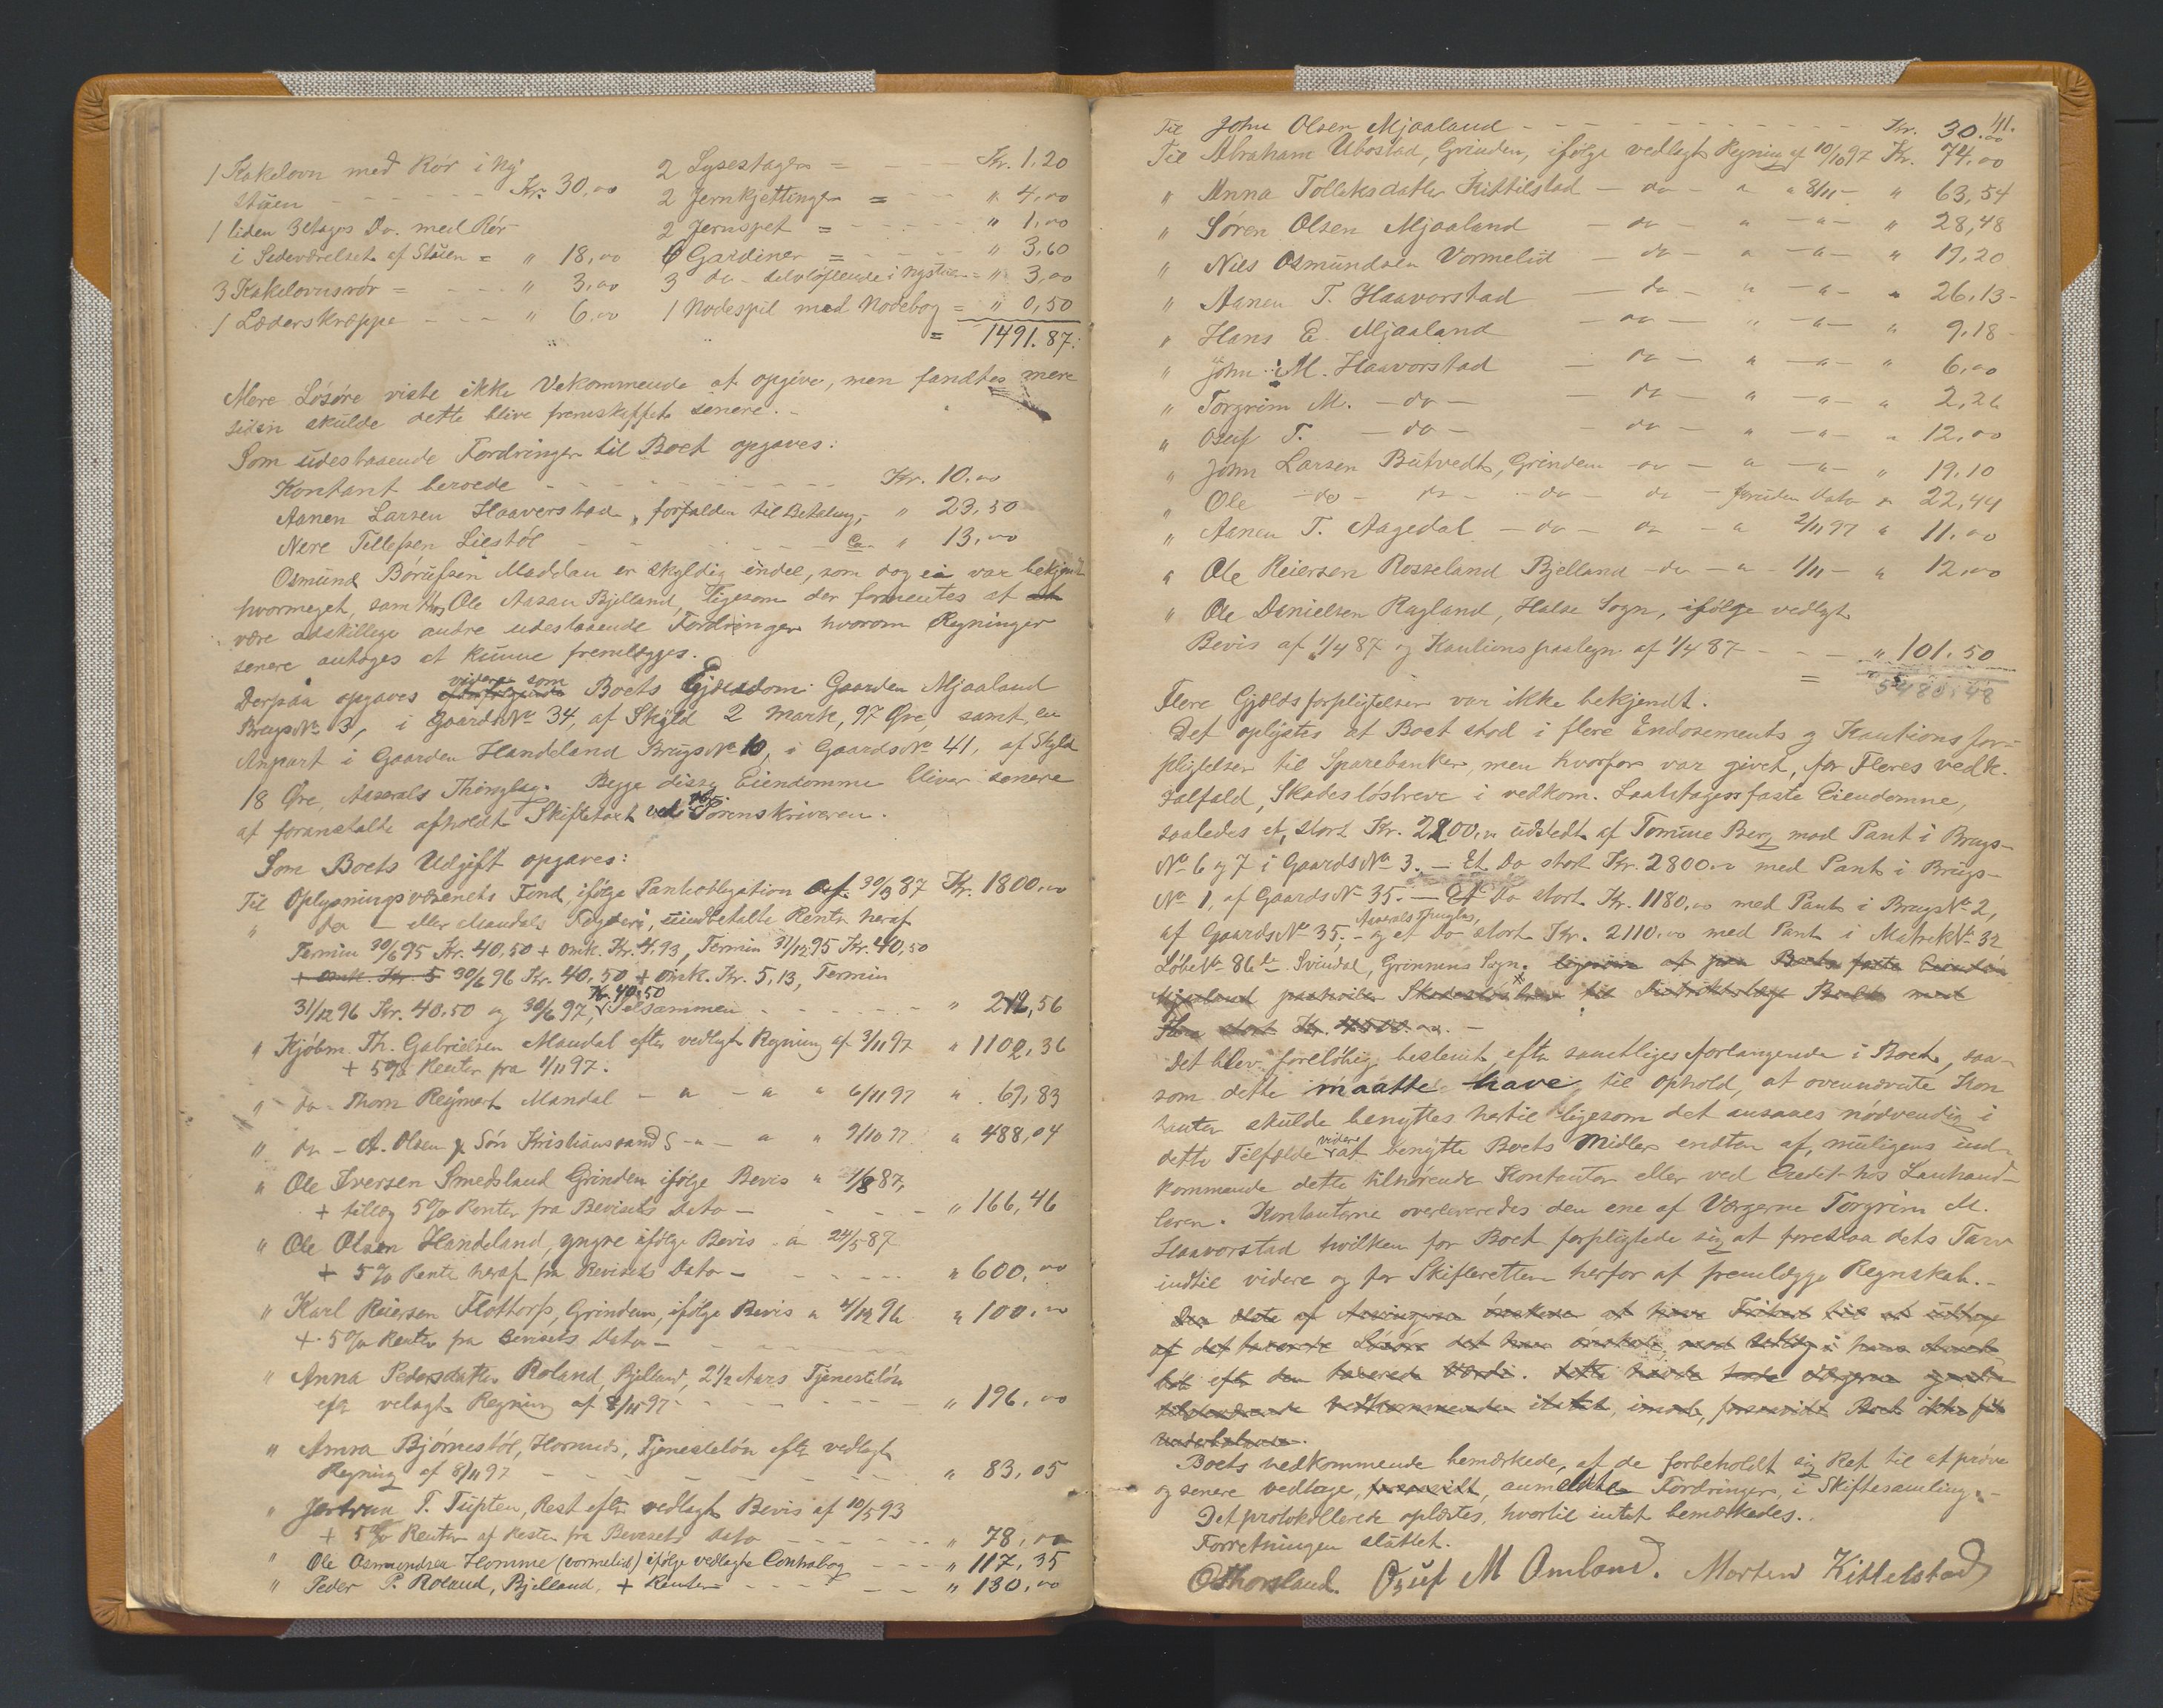 1 Kakelovn med Rør i Ny
stuen - - - - - - Kr. 30,00
1 liden 3 etages Do. med Rør
i Sideværelset af Stuen = " 18,00
3 Kakelovnsrør = - - - " 3,00
1 Læderskræppe - - - " 6,00
2 Lysestager = - - - Kr. 1,20
2 Jernkjettinger = - - - " 4,00
2 Jernspet = - - - " 1,00
6 Gardiner = - - - " 3,60
3 do - i Nystuen = " 3,00
1 Nodespil med Nodebog = " 0,50
= 1491.87.
Mere Løsøre viste ikke Vekommende at opgive, men fandtes mere
siden skulde dette blive fremskaffet senere. -
Som udestaaende Fordringer til Boet opgaves:
Kontant beroede - - - - - - - - Kr. 10.00
Aanen Larsen Haaverstad, forfalden til Betaling, - " 23,50
Nere Tellefsen Liestøl - - - - - - Ca. " 13,00
Osmund Børufsen Maddau er skyldig endel, som dog ei var bekjendt
hvormeget, samt Ole Aasan Bjelland, ligesom der formentes at
være adskillige andre udestaaende Fordringer hvorom Regninger
senere antages at kunne fremlægges.
Derpaa opgaves videre som Boets Ejendom: Gaarden Mjaaland
Brugs No 3, i Gaards No 34, af Skyld 2 Mark, 97 Øre, samt en
Anpart i Gaarden Handeland Brugs No 10, i Gaards No 41, af Skyld
18 Øre, Aaserals Thinglag. Begge disse Eiendomme bliver senere
at foranstalte afholdt Skiftetaxt ved Sorenskriveren.
Som Boets Udgift opgaves:
Til Oplysningsvæsenets Fond, ifølge Pantobligation af 30/3 87 Kr. 1800,00
" Do - eller Mandals Fogderi, uindbetalte Renter heraf
Termin 30/6 95 Kr. 40,50 + omk. Kr. 4,93, Termin 31/12 95 Kr. 40,50
+ Omk. Kr. 5 30/6 96 Kr. 40,50 + Omk. Kr. 5,13, Termin
31/12 96 Kr. 40,50 og 30/6 97, Kr. 40,50 Tilsammen - - - - " 212,56
" Kjøbm. Th. Gabrielsen Mandal efter vedlagt Regning af 3/11 97 " 1102,36
+ 5 % Renter fra 1/11 97.
" do - Thom Reymert Mandal - " - " " 6/11 97 " 69,83
" do - A. Olsen & Søn Kristianssand S - " - " " 9/10 97 " 488,04
" Ole Iversen Smedsland Grinden ifølge Bevis " 1/8 87,
+ tillæg 5 % Renter fra Bevisets Dato - - - - " 166,46
" Ole Olsen Handeland, yngre ifølge Bevis " 24/5 87
+ 5 % Rente heraf fra Bevisets Dato - - - - " 600,00
" Karl Reiersen Flottorp, Grindem, ifølge Bevis " 4/12 96 " 100,00
+ 5 % Renter fra Bevisets Dato -
" Anna Pedersdatter Roland, Bjelland, 2 1/2 Aars Tjenesteløn
eft velagt Regning af 8/11 97 - - - - - " 196,00
" Anna Bjørnestøl, Hornnes, Tjenesteløn eft vedlagt
Regning af 8/11 97 - - - - - - - " 83,05
" T. Tupten, Rest eft vedlagt Bevis af 10/5 93
+ 5 % Renter af Resten fra Bevisets Dato - - - - " 78,00
" Ole Osmundsen Homme (Vormelid) ifølge vedlagte Contrabog - - - " 117,35
" Peder P. Roland, Bjelland, + Renter - - - - " 130,00
41.
Til John Olsen Mjaaland - - - - - - - - Kr. 30.00
Til Abraham Ubostad, Grinden, ifølge vedlagt Regning af 10/10 97 Kr. 74,00
" Anna Tolleksdatter Kittilstad - do - " " 8/11 - " 63,54
" Søren Olsen Mjaaland - do - " - " - " 28,48
" Nils Osmundsen Vormelid - do - " - " - " 19,20
" Aanen T. Haavorstad - do - " - " - " 26,13 -
" Hans E. Mjaaland - do - " - " - " 9,18 -
" John M. Haavorstad - do - " - " - " 6,00
" Torgrim M. - do - - do - " - " - " 2,26
" Osuf T. - do - - do - " - " - " 12,00
" John Larsen Butvedt, Grindem - do - " - " - " 19,10
" Ole - do - do - - do - do - foruden Dato " 22,44
" Aanen T. Aagedal - do - do - " 2/11 97 " 11,00
" Ole Reiersen Rosseland Bjelland - do - " 1/11 - " 12,00
" Ole Danielsen Ragland, Halse Sogn, ifølge vedlagt
Bevis af 1/4 87 og Kautionspaategn. af 1/4 87 - - - " 101.50
= 5480,48
Flere Gjældsforpligtelser var ikke bekjendt.
Det oplystes at Boet stod i flere Endosements og Kautionsfor-
pligtelser til Sparebanker, men hvorfor var givet, for Fleres vedk.
Ialfald, Skadesløsbreve i vedkom. Laantageres faste Eiendomme,
saaledes et, stort Kr. 2200.00 udstedt af Tomine Berg mod Pant i Brugs-
No 6 og 7 i Gaards No 3. - Et Do stort Kr. 2800.00 med Pant i Brugs-
No 1, af Gaards No 35. - Et Do stort Kr. 1180.00 med Pant i Brugs No 2,
af Gaards No 35, - Aaserals Thinglag, og et Do stort Kr. 2110.00 med Pant i Matrik No 32
Løbe No 86 Svindal, Grinnens Sogn. af Boets faste
Mjaaland paahviler Skadesløsbrev til Boet med
stort Kr. 4500.00. -
Det blev foreløbig bestemt efter samtliges Forlangende i Boet, saa-
som dette maatte have til Ophold, at ovennævnte Kon
tanter skulde benyttes hertil ligesom det ansaaes nødvendig i
dette Tilfælde videre at benytte Boets Midler endten af, muligens ind-
kommende dette tilhørende Kontanter eller ved Credit hos Lanhand-
leren. Kontanterne overleveredes den ene af Værgerne Torgrim M.
Haavorstad hvilken for Boet forpligtede sig at forestaa dets Tarv
indtil videre og for Skifteretten herfor at fremlægge Regnskab. -
Den ældste af Arvingerne ønskede at have Frihed til at udtage
af det Løsøre det han ønskede, mod i hans
eft den Værdi. Dette havde Værgerne
tilstedeværende Vedkommende intet imod, forsaavidt Boet ikke fik
Underbalance.
Boets vedkommende bemærkede, at de forbeholdt sig Ret til at prøve
og senere vedtage, forsaavidt, anmeldte Fordringer, i Skiftesamling. -
Det protokollerede oplæstes, hvortil intet bemærkedes.
Forretningen sluttet.
O Thorsland. Osuf M Omland. Morten Kittelstad